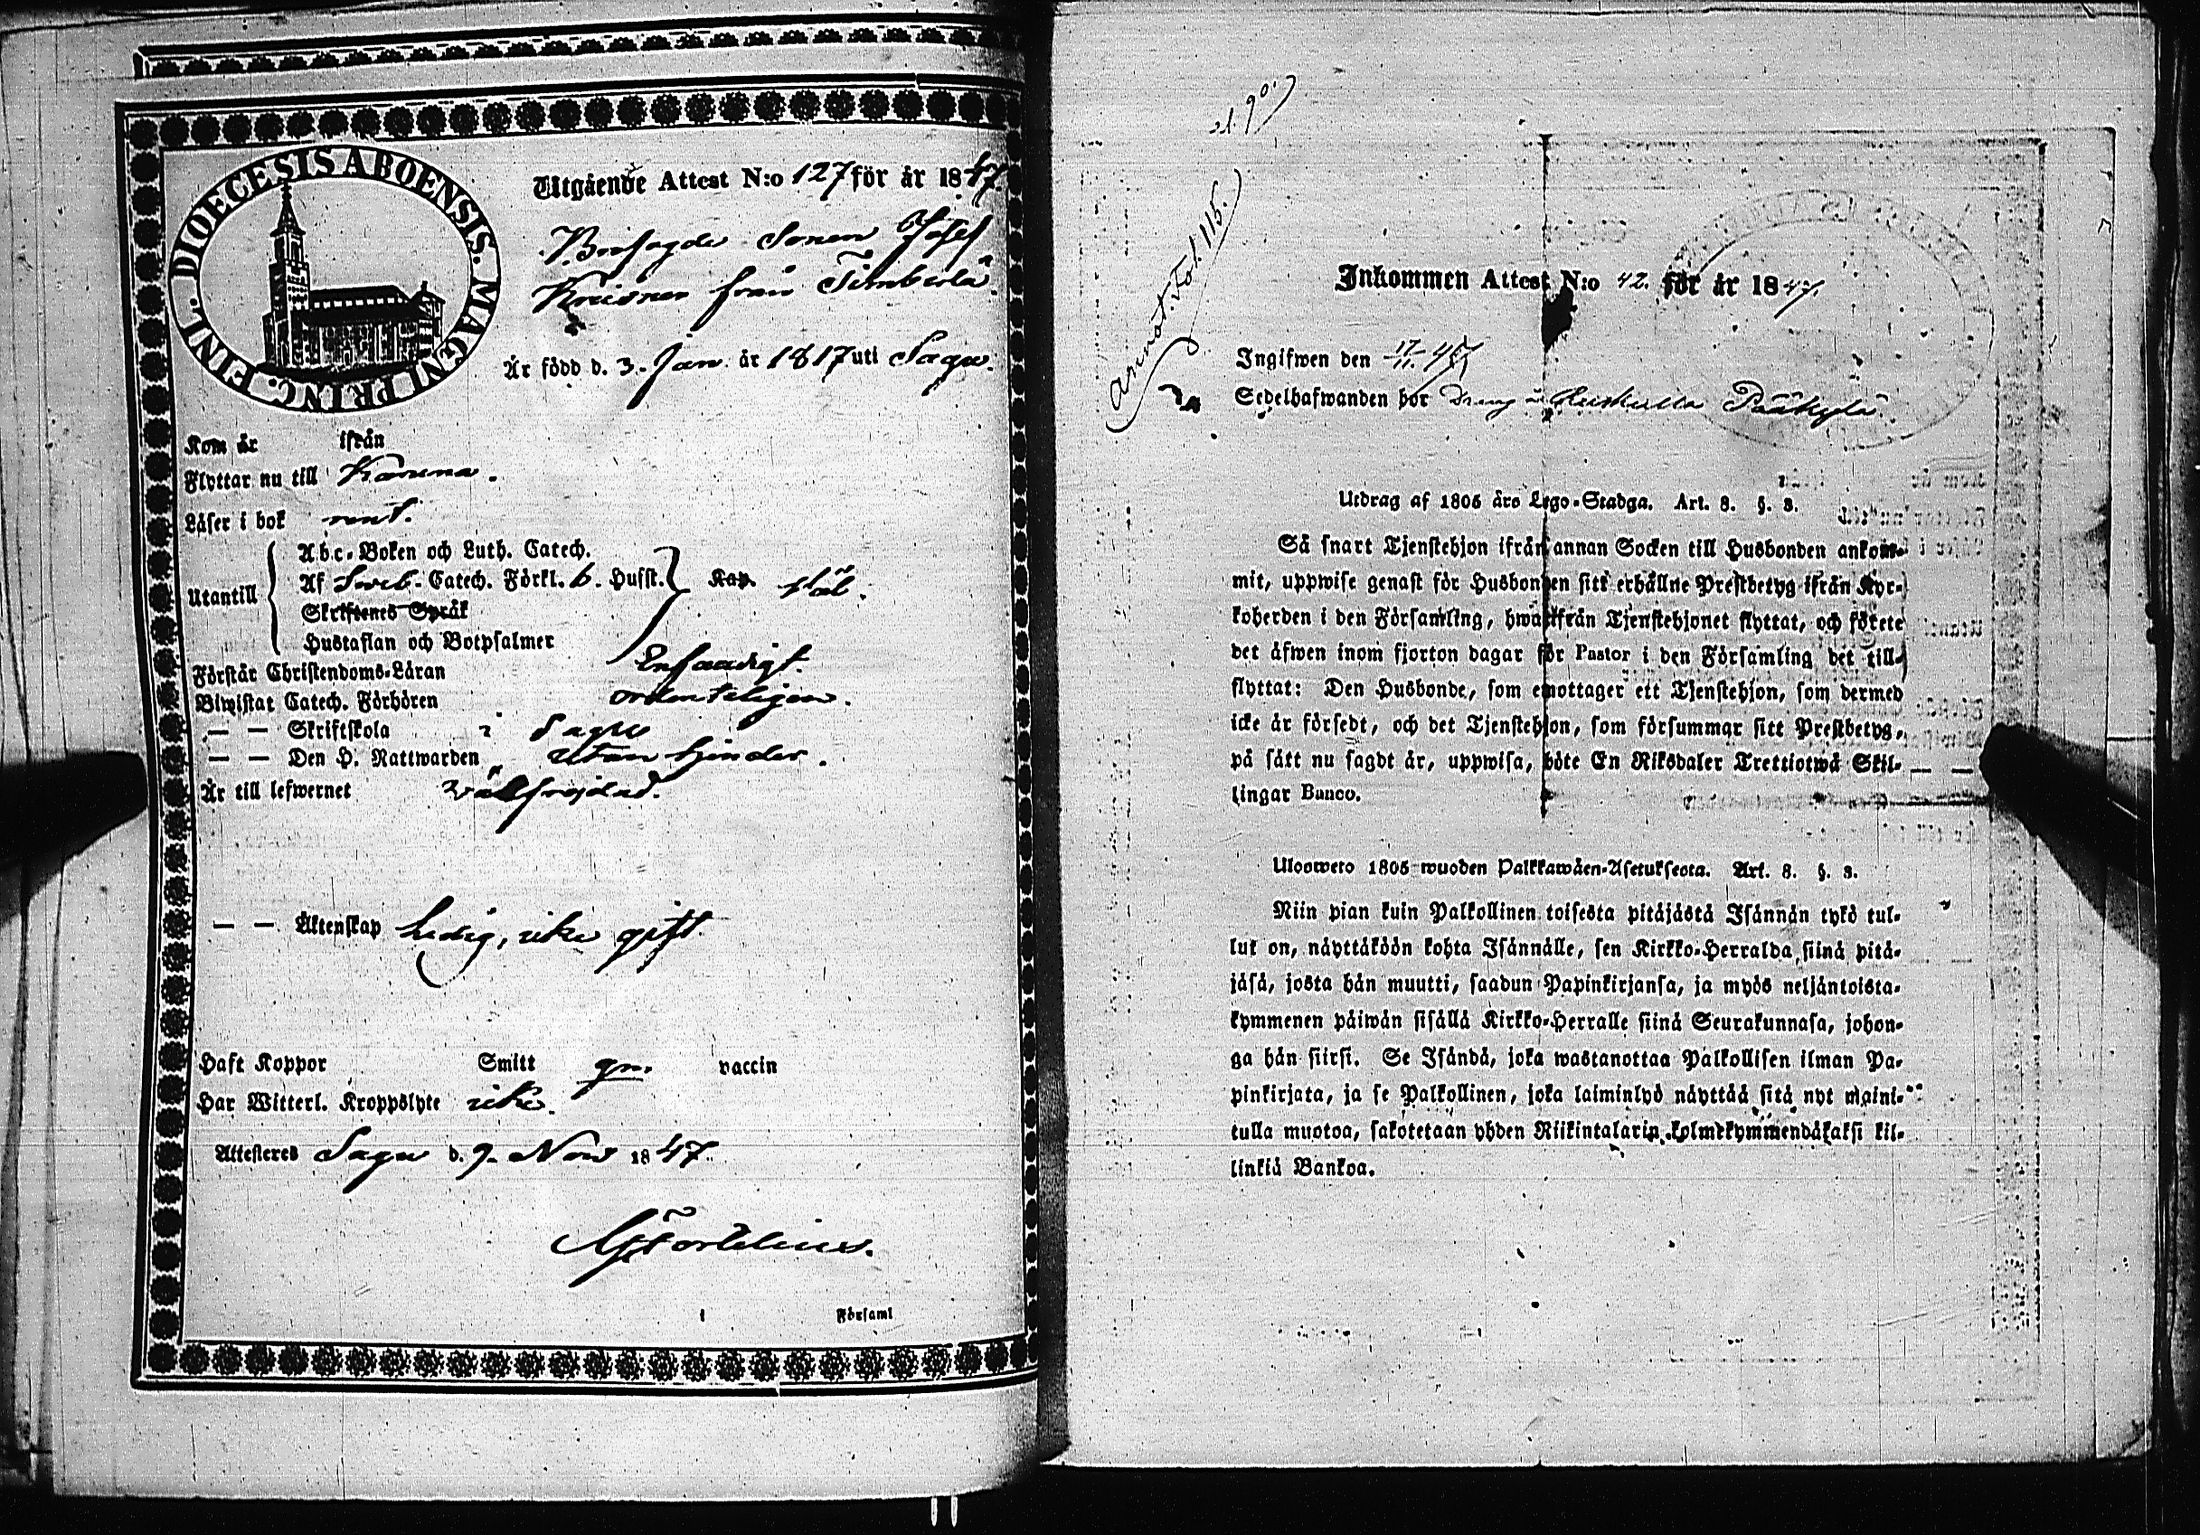 DIOECESIS ABOENSIS. MAGNI PRINC. FINL.
Utgående Attest N:o 127 för år 1847
Josef
från
Är född d. 3. Jan. år 1817 uti Sagu.
Kom år ifrån
Flyttar nu till Karuna.
Läser i bok rent.
Utantill
Abc-Boken och Luth. Catech.
Af Sveb. Catech. Förkl. 6. Husst. Kap.
Skriftenes Språk
Hustaflan och Botpsalmer
Förstår Christendoms-Läran Enfaldigt
Biwistat Catech. Förhören ordenteligen.
— — Skriftskola i Sagu
— — Den H. Nattwarden Utan hinder.
Är till lefwernet wälfrejdad.
— — Äktenskap Ledig, icke gift
Haft Koppor Smitt gm. vaccin
Har Witterl. Kroppslyte icke.
Attesteres Sagu d. 9. Nov 1847.
i Församl
fol. 115.
Inkommen Attest N:o 42. för år 1847.
Ingifwen den 17/11 47
Sedelhafwanden bor Dräng
Utdrag af 1805 års Lego-Stadga. Art. 8. §. 3.
Så snart Tjenstehjon ifrån annan Socken till Husbonden ankom-
mit, uppwise genast för Husbonden sitt erhållne Prestbetyg ifrån Kyr-
koherden i den Församling, hwarifrån Tjenstehjonet flyttat, och förete
det äfwen inom fjorton dagar för Pastor i den Församling det till-
flyttat: Den Husbonde, som emottager ett Tjenstehjon, som dermed
icke är försedt, och det Tjenstehjon, som försummar sitt Prestbetyg,
på sätt nu sagdt är, uppwisa, böte En Riksdaler Trettiotwå Skil-
lingar Banco.
Ulosweto 1805 wuoden Palkkawäen-Asetuksesta. Art. 8. §. 3.
Niin pian kuin Palkollinen toisesta pitäjästä Isännän tykö tul-
lut on, näyttäköön kohta Isännälle, sen Kirkko-Herralda, siinä pitä-
jäsä, josta hän muutti, saadun Papinkirjansa, ja myös neljäntoista-
kymmenen päiwän sisällä Kirkko-Herralle siinä Seurakunnasa, johon-
ga hän siirsi. Se Isändä, joka wastanottaa Palkollisen ilman Pa-
pinkirjata, ja se Palkollinen, joka laiminlyö näyttää sitä nyt maini-
tulla muotoa, sakotetaan yhden Riikintalarin kolmekymmendäkaksi kil-
linkiä Bankoa.